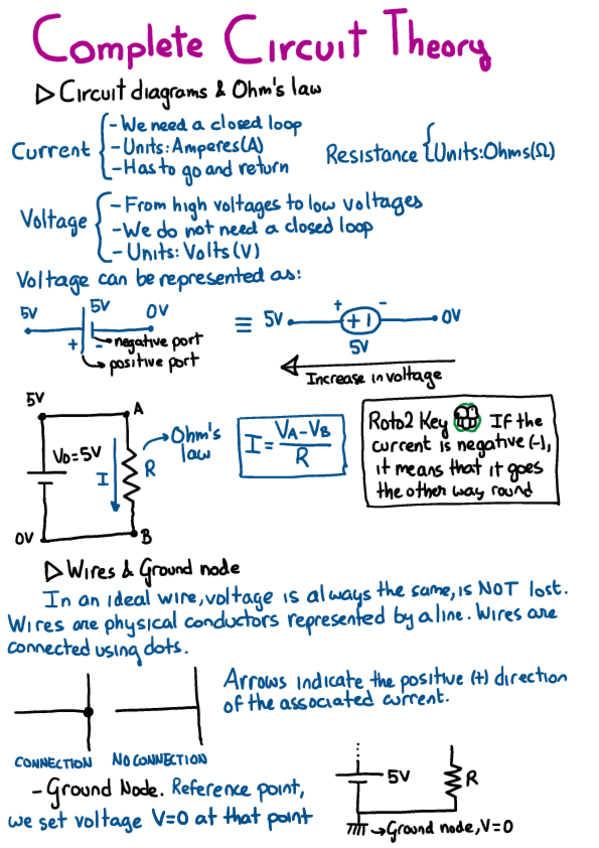 Complete Circuit Theory
▷ Circuit diagrams & Ohm's law
Current { - We need a closed loop
- Units: Amperes (A)
- Has to go and return
Resistance { Units: Ohms (Ω)
Voltage { - From high voltages to low voltages
- We do not need a closed loop
- Units: Volts (V)
Voltage can be represented as:
5V 5V 0V
+ -
negative port
positive port
≡ 5V + - 0V
+ I
5V
Increase in voltage
5V A
V0=5V I R
0V B
Ohm's
law
I = VA-VB / R
Roto2 Key If the
current is negative (-),
it means that it goes
the other way round
▷ Wires & Ground node
In an ideal wire, voltage is always the same, is NOT lost.
Wires are physical conductors represented by a line. Wires are
connected using dots.
Arrows indicate the positive (+) direction
of the associated current.
CONNECTION NO CONNECTION
- Ground Node. Reference point,
we set voltage V=0 at that point
5V R
Ground node, V=0